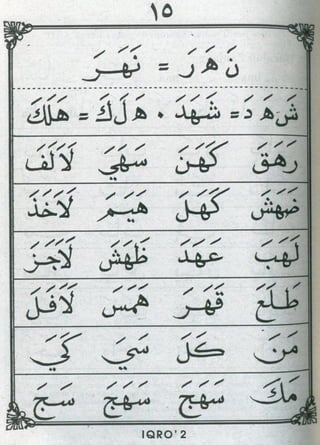 ١٥
نَ هَ رَ = نَهَرَ
شَ هَ دَ = شَهَدَ ٠ هَ لَ كَ = هَلَكَ
رَهَقَ كَهَنَ سَهَيَ لَالَفَ
ضَهَشَ كَهَلَ هَيَمَ لَاخَذَ
لَهَبَ عَهَدَ ظَهَشَ لَاجَزَ
طَلَعَ قَهَرَ هَمَسَ لَافَلَ
مَنَ كَلَ سَيَ كَيَ
مَكَ سَهَجَ سَهَجَ سَجَ
IQRO' 2